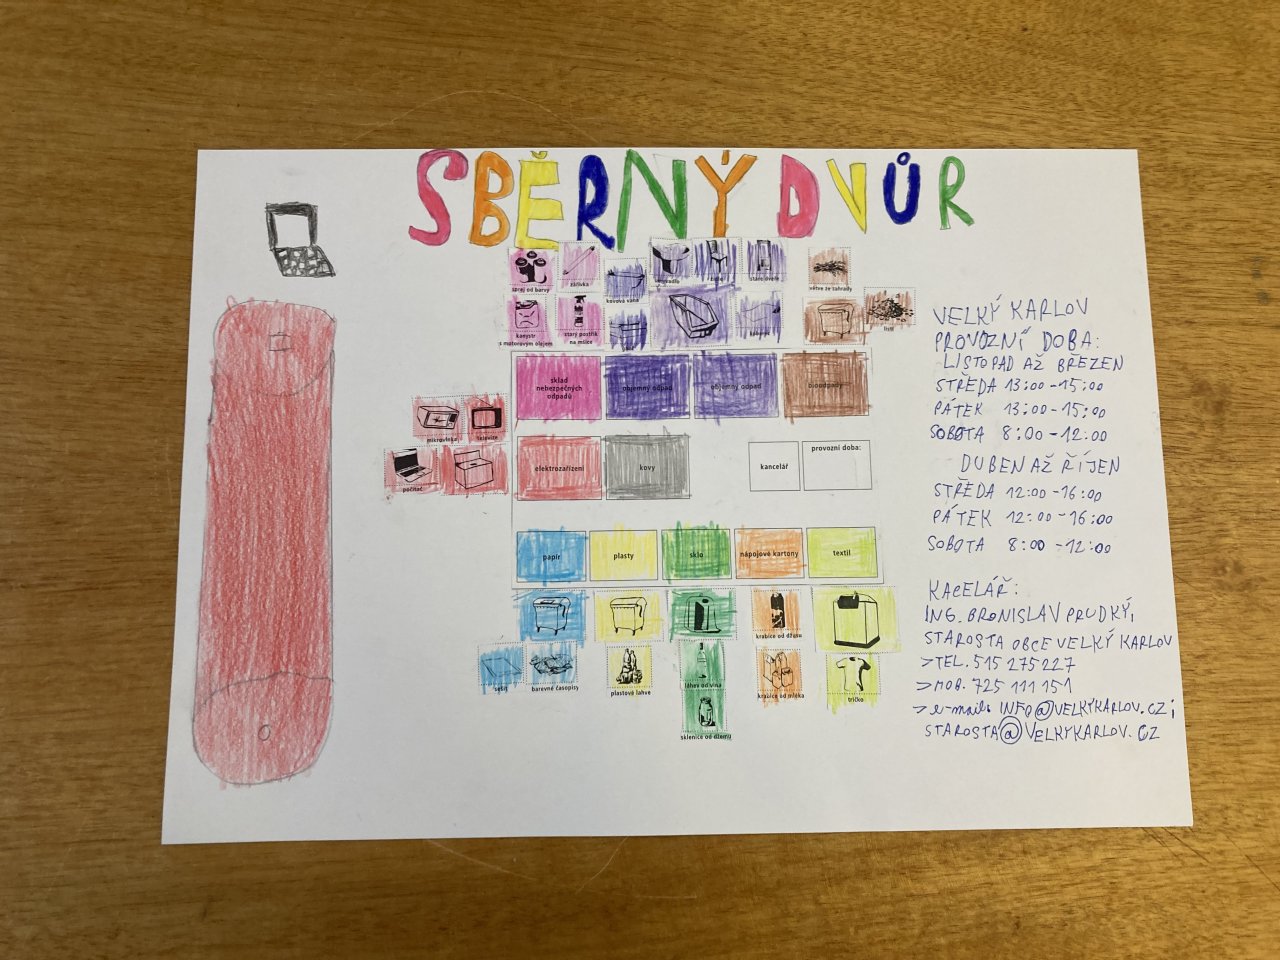 SBĚRNÝ DVŮR
sprej od barvy
zářivka
kovová vana
staré dveře
větve ze zahrady
kanystr
s motorovým olejem
starý postřik
na mšice
listí
sklad
nebezpečných
odpadů
objemný odpad
objemný odpad
bioodpady
mikrovlnka
televize
počítač
elektrozařízení
kovy
kancelář
provozní doba:
papír
plasty
sklo
nápojové kartony
textil
krabice od džusu
sešit
barevné časopisy
plastové lahve
láhev od vína
krabice od mléka
tričko
sklenice od džemu
VELKÝ KARLOV
PROVOZNÍ DOBA:
LISTOPAD AŽ BŘEZEN
STŘEDA 13:00-15:00
PÁTEK 13:00-15:00
SOBOTA 8:00-12:00
DUBEN AŽ ŘÍJEN
STŘEDA 12:00-16:00
PÁTEK 12:00-16:00
SOBOTA 8:00-12:00
KACELÁŘ:
ING. BRONISLAV PRUDKÝ,
STAROSTA OBCE VELKÝ KARLOV
>TEL. 515 275 227
>MOB. 725 111 151
>e-mail: INFO@VELKYKARLOV.CZ;
STAROSTA@VELKYKARLOV.CZ